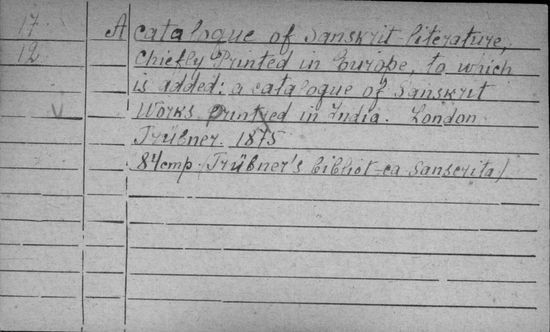 17 A catalogue of Sanskrit literature,
12 Chiefly Printed in Europe, to which
is added: a catalogue of Sanskrit
Works printed in India. London
Trübner. 1875
84 cmp (Trübner's bibliot-ca sanscrita)